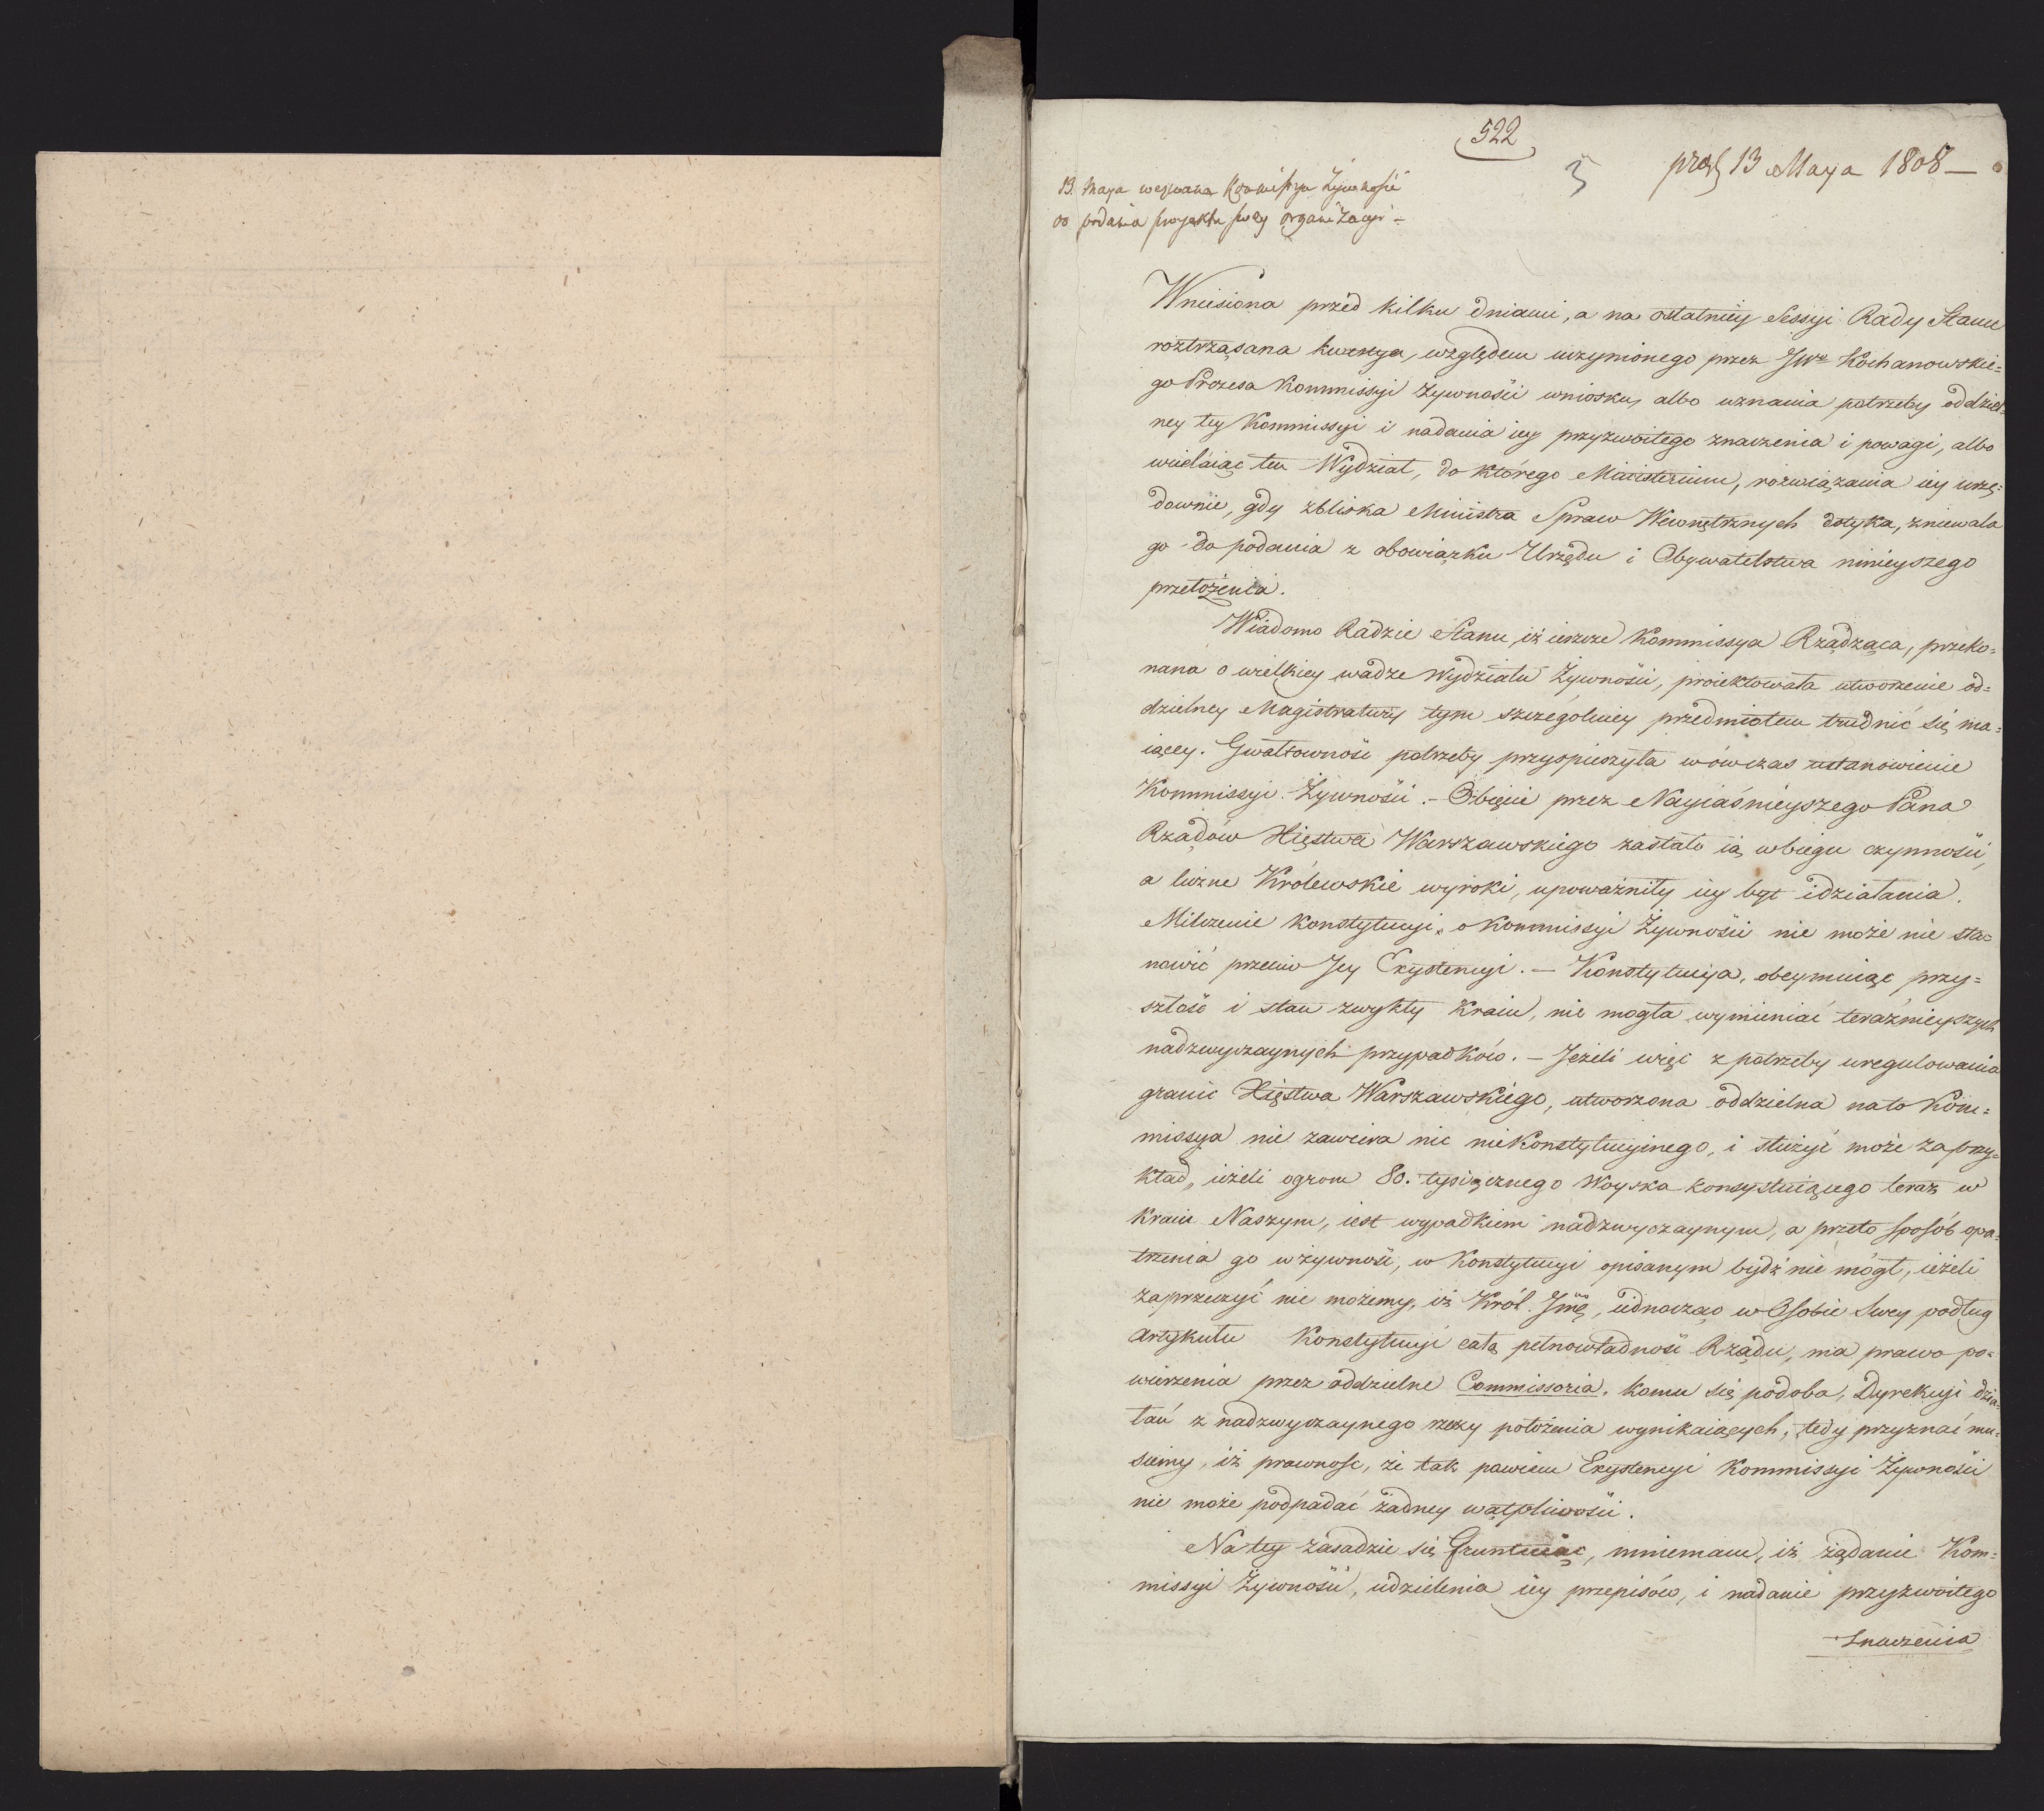 522
5
prez 13 Maya 1808 —
13. Maya wezwana Kommissya Żywnośći
do podania proyektu swey organizacyi –
Wniesiona przed kilku dniami, a na ostatniey Sessyi Rady Stanu
roztrząsana kwestya, względem uczynionego przez JWo Kochanowskie=
go Prezesa Kommissyi Żywnośći wniosku, albo uznania potrzeby oddziel=
ney tey Kommissyi i nadania iey przyzwoitego znaczenia i powagi, albo
wcielaiąc ten Wydział, do którego Ministerium, rozwiązania iey urzę=
downie, gdy zbliska Ministra Spraw Wewnętrznych dotyka, zniewala
go do podania z obowiązku Urzędu i Obywatelstwa ninieyszego
przełożenia.
Wiadomo Radzie Stanu, iż ieszcze Kommissya Rządząca, przeko=
nana o wielkiey wadze Wydziału Żywnośći, proiektowała utworzenie od=
dzielney Magistratury tym szczególniey przedmiotem trudnić się ma=
iącey. Gwałtowność potrzeby przyspieszyła wówczas ustanowienie
Kommissyi Żywnośći. – Obięcie przez Nayiaśnieyszego Pana
Rządów Xięstwa Warszawskiego zastało ią w biegu czynnośći,
a liczne Królewskie wyroki, upoważniły iey byt i działania.
Milczenie Konstytucyi, o Kommissyi Żywnośći nie może nic sta=
nowić przeciw Jey Exystencyi. – Konstytucya, obeymuiąc przy=
szłość i stan zwykły Kraiu, nie mogła wymieniać teraźnieyszych
nadzwyczaynych przypadków. – Jeżeli więc z potrzeby uregulowania
granic Xięstwa Warszawskiego, utworzona oddzielna na to Kom=
missya nie zawiera nic niekonstytucyinego, i służyć może za przy=
kład, ieżeli ogrom 80. tysięcznego Woyska konsystuiącego teraz w
Kraiu Naszym, iest wypadkiem nadzwyczaynym, a przeto sposób opa=
trzenia go w żywność, w Konstytucyi opisanym bydź nie mógł, ieżeli
zaprzeczyć nie możemy, iż Król. Jmć, iednocząc w Osobie Swey podług
Artykułu Konstytucyi całą pełnowładność Rządu, ma prawo po=
wierzenia przez oddzielne Commissoria, komu się podoba, Dyrekcyi dzia=
łań z nadzwyczaynego rzeczy położenia wynikaiących, tedy przyznać mu=
siemy, iż prawność, że tak powiem Exystencyi Kommissyi Żywnośći
nie może podpadać żadney wątpliwośći.
Na tey zasadzie się gruntuiąc, mniemam, iż żądanie Kom=
missyi Żywnośći, udzielenia iey przepisów, i nadanie przyzwoitego
znaczenia